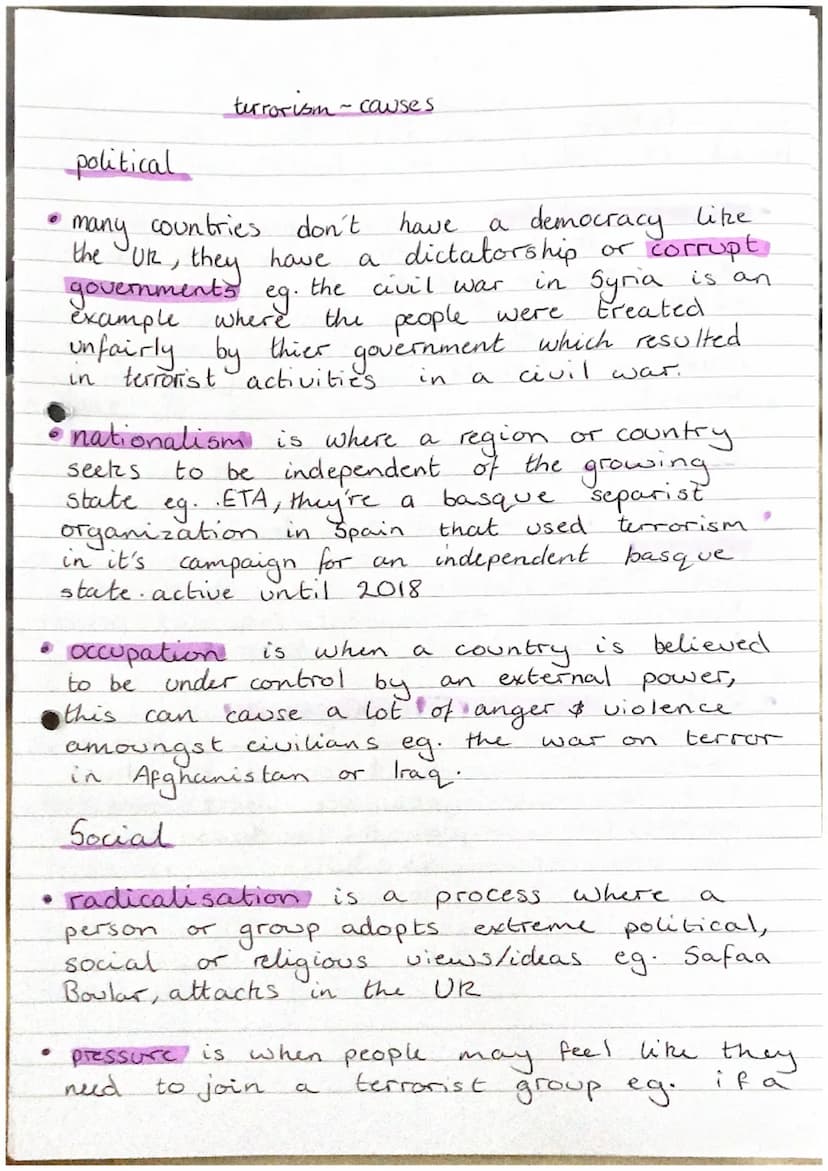 terrorism ~ causes
political
• many countries don't have a democracy like
the UK, they have a dictatorship or corrupt
governments eg. the civil war in Syria is an
example where the people were treated
unfairly by thier government which resulted
in terrorist activities in a civil war.
• nationalism is where a region or country
seeks to be independent of the growing
state eg. ETA, they're a basque separist
organization in Spain that used terrorism
in it's campaign for an independent basque
state. active until 2018
• occupation is when a country is believed
to be under control by an external power,
this can cause a lot of anger & violence
amoungst civilians eg. the war on terror
in Afghanistan or Iraq.
Social
• radicalisation is a process where a
person or group adopts extreme political,
social or religious views/ideas eg. Safaa
Boular, attacks in the UK
• pressure is when people may feel like they
need to join a terrorist group eg. if a